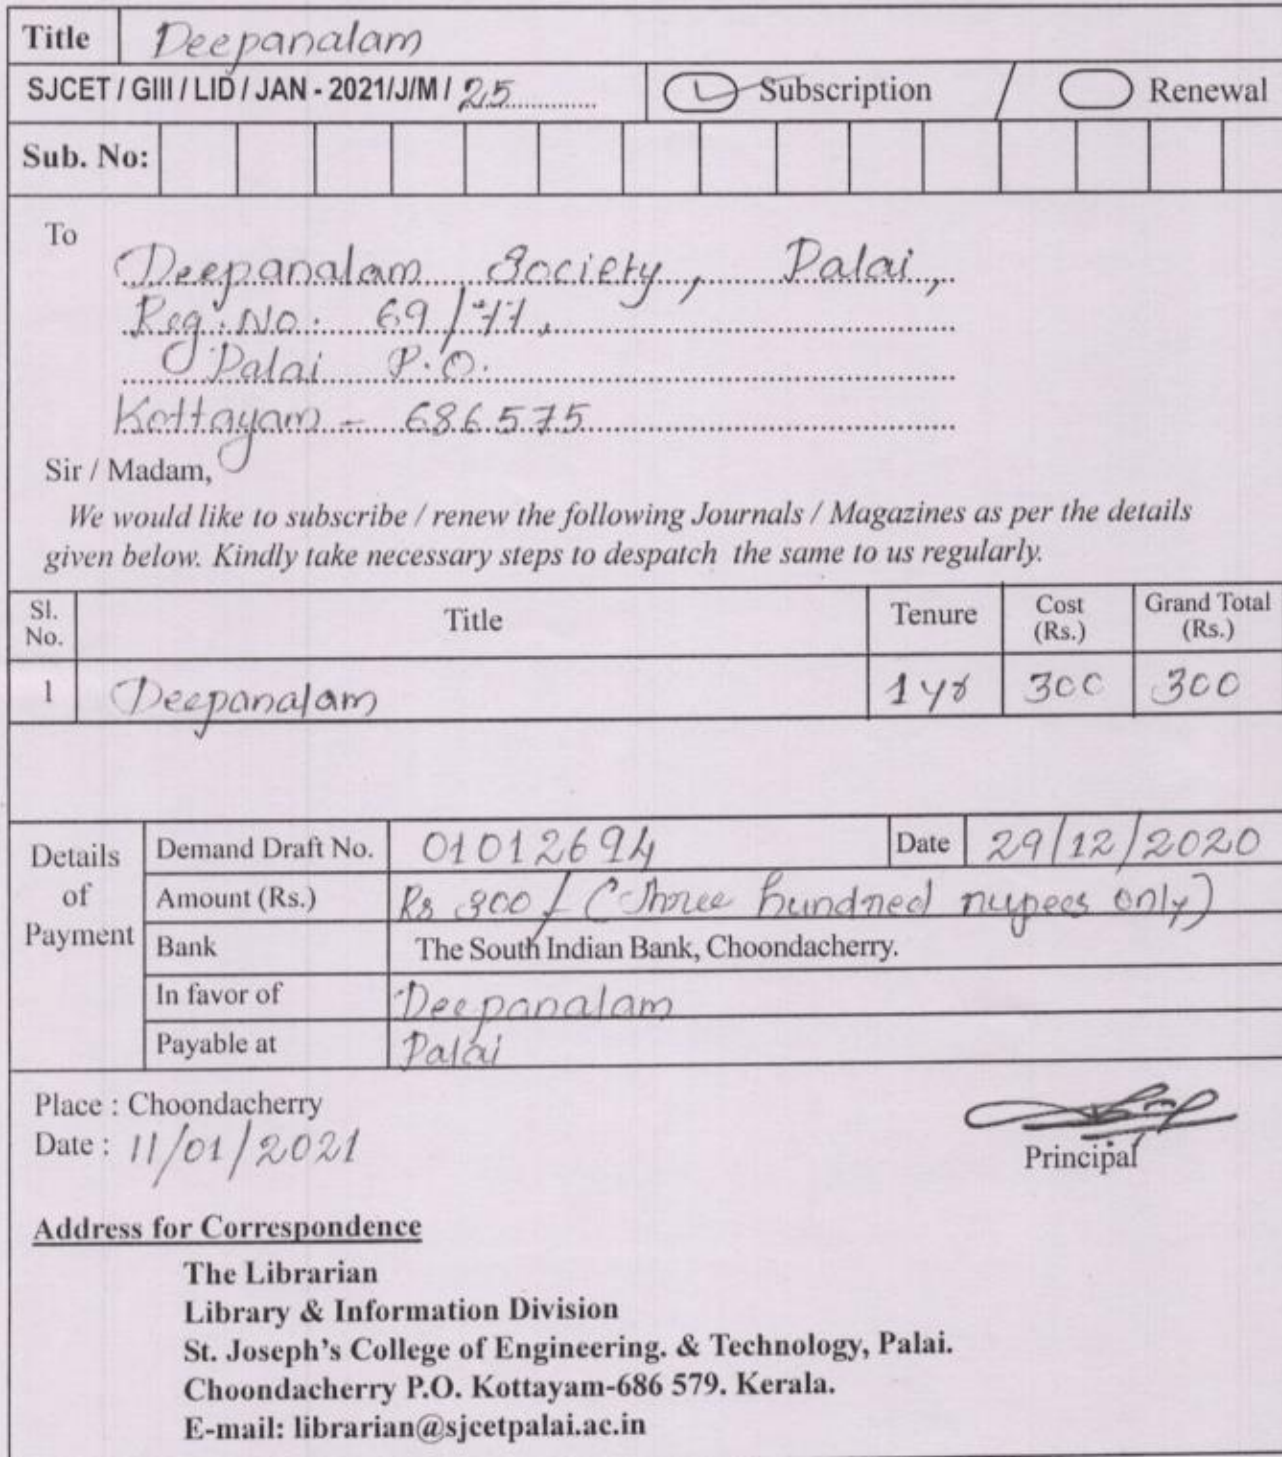 Title Deepanalam
SJCET / GIII / LID / JAN - 2021/J/M / 25 Subscription / Renewal
Sub. No:
To
Deepanalam Society, Palai,
Reg. No. 69/77,
Palai P.O.
Kottayam - 686575
Sir / Madam,
We would like to subscribe / renew the following Journals / Magazines as per the details
given below. Kindly take necessary steps to despatch the same to us regularly.
Sl. No. Title Tenure Cost (Rs.) Grand Total (Rs.)
1 Deepanalam 1 yr 300 300
Details of Payment
Demand Draft No. 01012694 Date 29/12/2020
Amount (Rs.) Rs 300/- (Three hundred rupees only)
Bank The South Indian Bank, Choondacherry.
In favor of Deepanalam
Payable at Palai
Place : Choondacherry
Date : 11/01/2021
Principal
Address for Correspondence
The Librarian
Library & Information Division
St. Joseph's College of Engineering. & Technology, Palai.
Choondacherry P.O. Kottayam-686 579. Kerala.
E-mail: librarian@sjcetpalai.ac.in